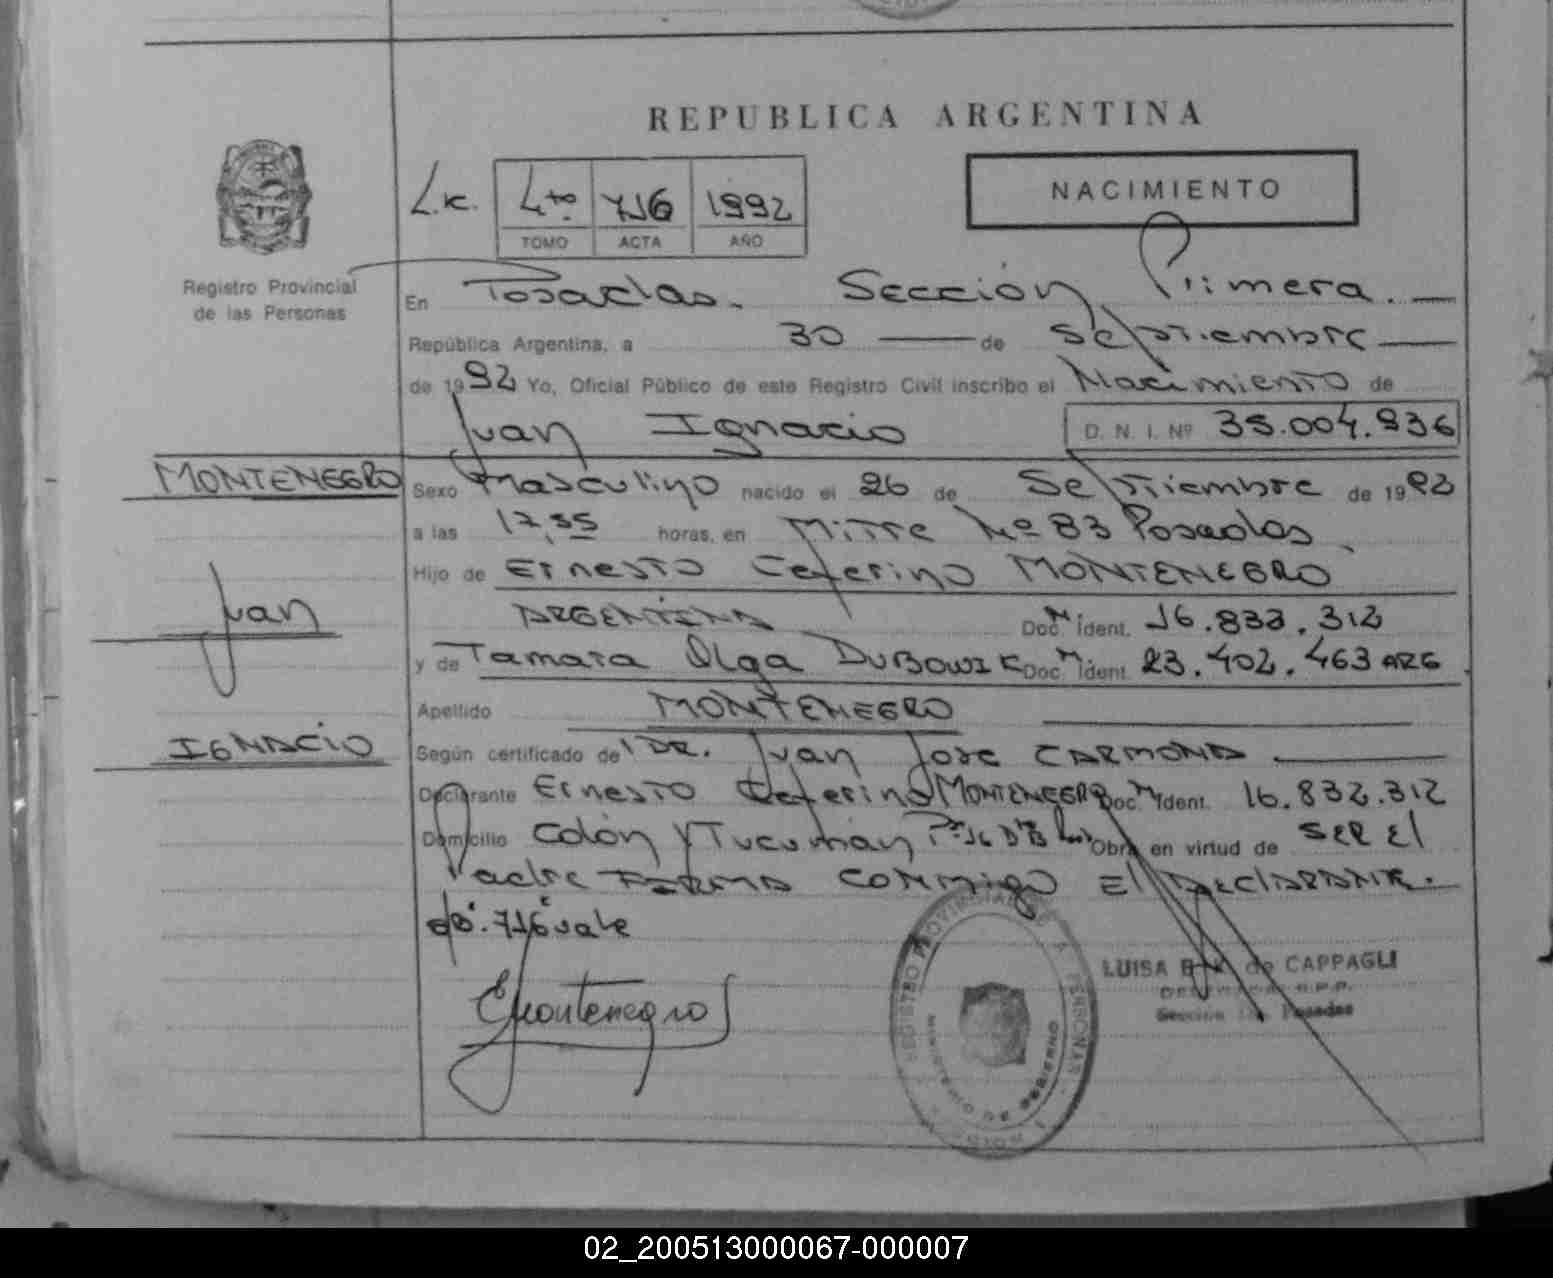 REPUBLICA ARGENTINA
NACIMIENTO
L.c. 4to. 716 1992
TOMO ACTA AÑO
Registro Provincial
de las Personas
En Posadas. Sección Primera.
República Argentina, a 30 de Septiembre
de 1992 Yo, Oficial Público de este Registro Civil inscribo el Nacimiento de
Juan Ignacio D. N. I. Nº 35.004.936
MONTENEGRO
Juan
IGNACIO
Sexo Masculino nacido el 26 de Septiembre de 1992
a las 17,35 horas, en Mitre Nº 83 Posadas.
Hijo de Ernesto Ceferino MONTENEGRO
ARGENTINA Doc. M. Ident. 16.832.312
y de Tamara Olga DUBOWIK Doc. M. Ident. 23.402.463 ARG
Apellido MONTENEGRO
Según certificado del DR. Juan José CARMONA
Declarante Ernesto Ceferino MONTENEGRO Doc. M. Ident. 16.832.312
Domicilio Colón y Tucumán Obra en virtud de SER El
Padre FIRMA conmigo El DECLARANTE.
716 vale
EMontenegro
REGISTRO PROVINCIAL DE LAS PERSONAS
MINISTERIO DE GOBIERNO
LUISA de CAPPAGLI
R.P.P.
Sección 1ra Posadas
02_200513000067-000007